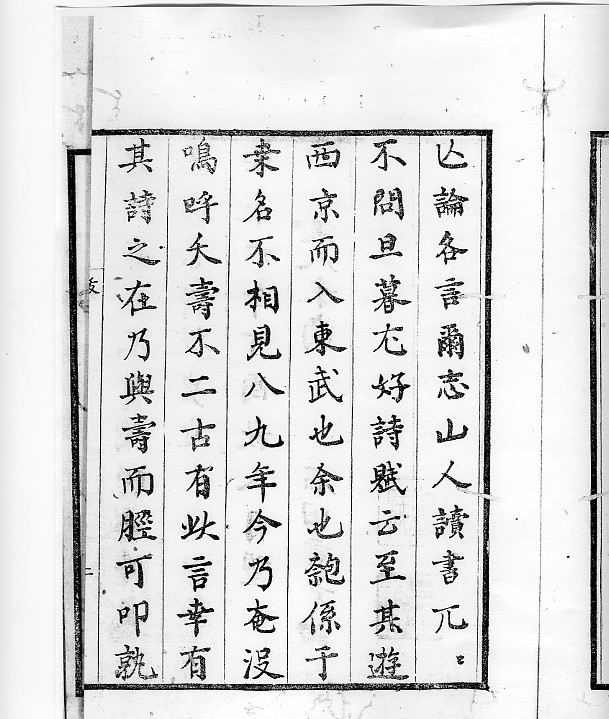 亾論各言爾志山人讀書兀〻
不問旦暮尤好詩賦云至其遊
西京而入東武也余也匏係于
桒名不相見八九年今乃奄没
嗚呼夭壽不二古有此言幸有
其詩之在乃與壽而脛可叩孰
二